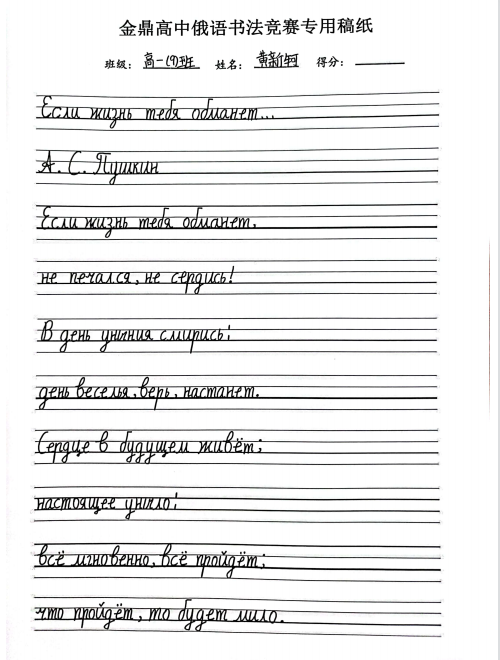 金鼎高中俄语书法竞赛专用稿纸
班级: 高一(9)班 姓名: 黄新钶 得分:
Если жизнь тебя обманет...
А. С. Пушкин
Если жизнь тебя обманет,
не печался, не сердись!
В день уныния смирись:
день веселья, верь, настанет.
Сердце в будущем живёт;
настоящее уныло:
всё мгновенно, всё пройдёт;
что пройдёт, то будет мило.